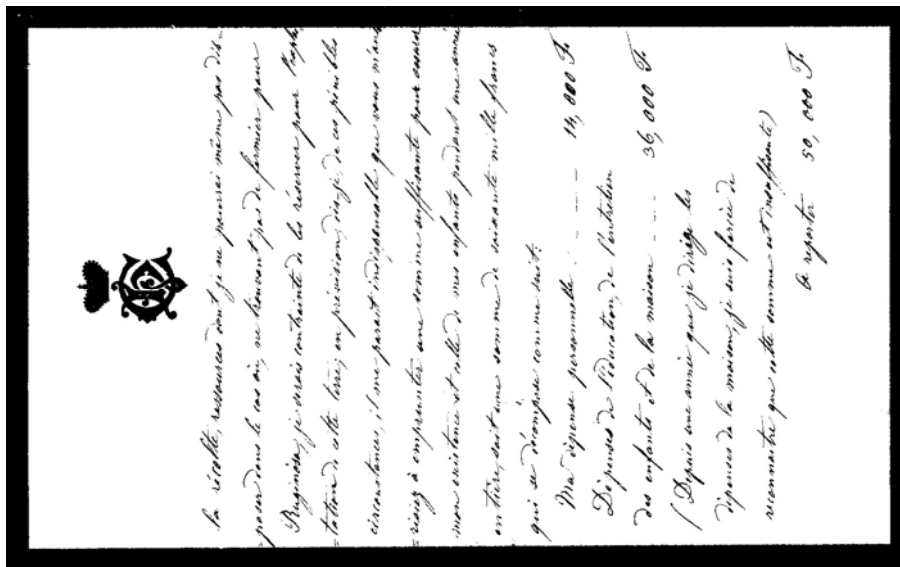 la récolte, ressources dont je ne pourrai même pas dis-
-poser dans le cas où, ne trouvant pas de fermier pour
je serais contrainte de les réserver pour l'exploi
-tation de cette terre, en prévision, dis-je, de ces pénibles
circonstances, il me parait indispensable que vous m'auto
-risiez à emprunter une somme suffisante pour assurer
mon existence et celle de mes enfants pendant une année
entière, soit une somme de soixante mille francs
qui se décompose comme suit:
Ma dépense personnelle . - - - 14,000 F.
Dépenses de l'éducation, de l'entretien
des enfants & de la maison - - - 36,000 F.
(Depuis une année que je dirige les
dépenses de la maison, je suis forcée de
reconnaître que cette somme est insuffisante)
à reporter 50,000 F.